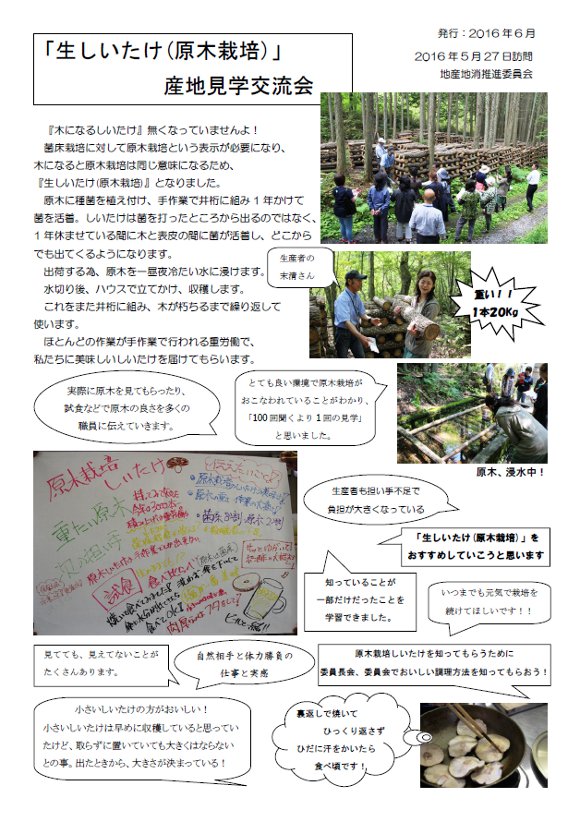 発行：2016年6月
「生しいたけ(原木栽培)」
産地見学交流会
2016年5月27日訪問
地産地消推進委員会
『木になるしいたけ』無くなっていませんよ！
菌床栽培に対して原木栽培という表示が必要になり、
木になると原木栽培は同じ意味になるため、
『生しいたけ(原木栽培)』となりました。
原木に種菌を植え付け、手作業で井桁に組み1年かけて
菌を活着。しいたけは菌を打ったところから出るのではなく、
1年休ませている間に木と表皮の間に菌が活着し、どこから
でも出てくるようになります。
出荷する為、原木を一昼夜冷たい水に浸けます。
水切り後、ハウスで立てかけ、収穫します。
これをまた井桁に組み、木が朽ちるまで繰り返して
使います。
ほとんどの作業が手作業で行われる重労働で、
私たちに美味しいしいたけを届けてもらいます。
生産者の
末清さん
重い！！
1本20Kg
実際に原木を見てもらったり、
試食などで原木の良さを多くの
職員に伝えていきます。
とても良い環境で原木栽培が
おこなわれていることがわかり、
「100回聞くより1回の見学」
と思いました。
原木、浸水中！
原木栽培
しいたけ
重たい原木
生産者も担い手不足で
負担が大きくなっている
「生しいたけ(原木栽培)」を
おすすめしていこうと思います
知っていることが
一部だけだったことを
学習できました。
いつまでも元気で栽培を
続けてほしいです！！
見てても、見えてないことが
たくさんあります。
自然相手と体力勝負の
仕事と実感
原木栽培しいたけを知ってもらうために
委員長会、委員会でおいしい調理方法を知ってもらおう！
小さいしいたけの方がおいしい！
小さいしいたけは早めに収穫していると思ってい
たけど、取らずに置いていても大きくはならない
との事。出たときから、大きさが決まっている！
裏返しで焼いて
ひっくり返さず
ひだに汗をかいたら
食べ頃です！